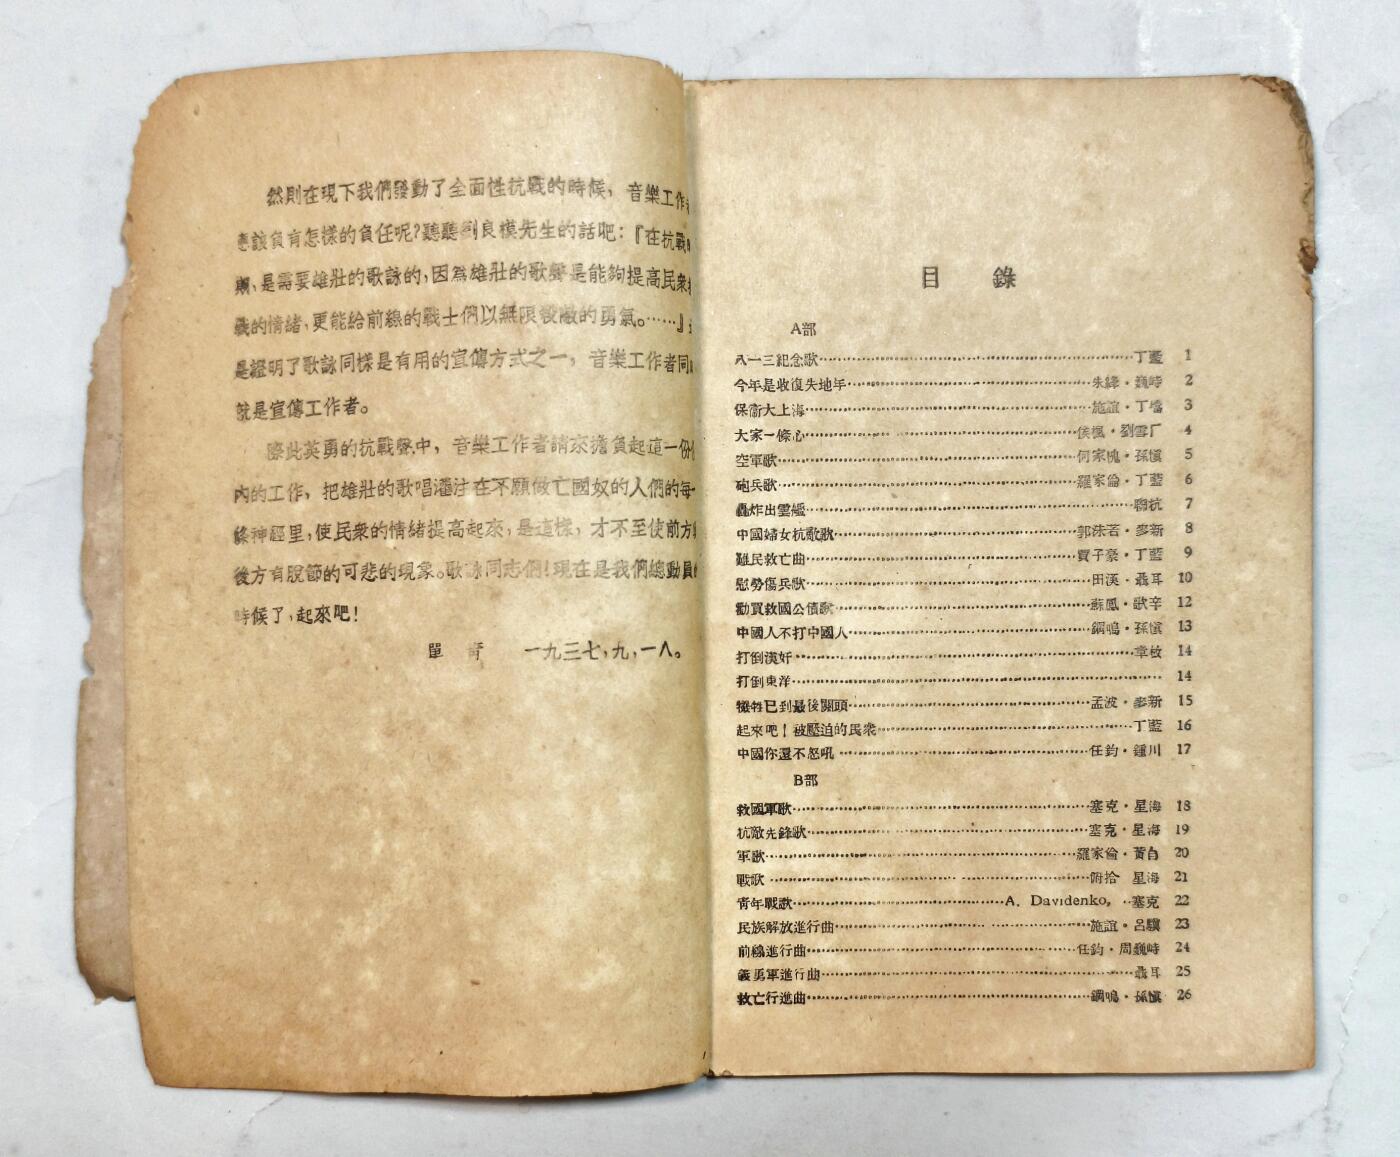 然則在現下我們發動了全面性抗戰的時候，音樂工作
應該負有怎樣的負任呢？聽聽劉良模先生的話吧：『在抗戰
期，是需要雄壯的歌詠的，因為雄壯的歌聲是能夠提高民衆
戰的情緒，更能給前線的戰士們以無限殺敵的勇氣。……』
是證明了歌詠同樣是有用的宣傳方式之一，音樂工作者同
就是宣傳工作者。
際此英勇的抗戰聲中，音樂工作者請來擔負起這一份
內的工作，把雄壯的歌唱灌注在不願做亡國奴的人們的每一
條神經里，使民衆的情緒提高起來，是這樣，才不至使前方
後方有脫節的可悲的現象。歌詠同志們！現在是我們總動員
時候了，起來吧！
單 一九三七，九，一八。
目錄
A部
八一三紀念歌 丁藍 1
今年是收復失地年 朱繹·巍峙 2
保衛大上海 施誼·丁 3
大家一條心 侯楓·劉雪厂 4
空軍歌 何家槐·孫愼 5
砲兵歌 羅家倫·丁藍 6
轟炸出雲艦 7
中國婦女抗敵歌 郭沫若·麥新 8
難民救亡曲 賈子豪·丁藍 9
慰勞傷兵歌 田漢·聶耳 10
勸買救國公債歌 蘇鳳·歌辛 12
中國人不打中國人 鋼鳴·孫愼 13
打倒漢奸 章枚 14
打倒東洋 14
犧牲已到最後關頭 孟波·麥新 15
起來吧！被壓迫的民衆 丁藍 16
中國你還不怒吼 任鈞·鍾川 17
B部
救國軍歌 塞克·星海 18
抗敵先鋒歌 塞克·星海 19
軍歌 羅家倫·黃自 20
戰歌 俯拾 星海 21
靑年戰歌 A. Davidenko, 塞克 22
民族解放進行曲 施誼·呂驥 23
前線進行曲 任鈞·周巍峙 24
義勇軍進行曲 聶耳 25
救亡行進曲 鋼鳴·孫愼 26